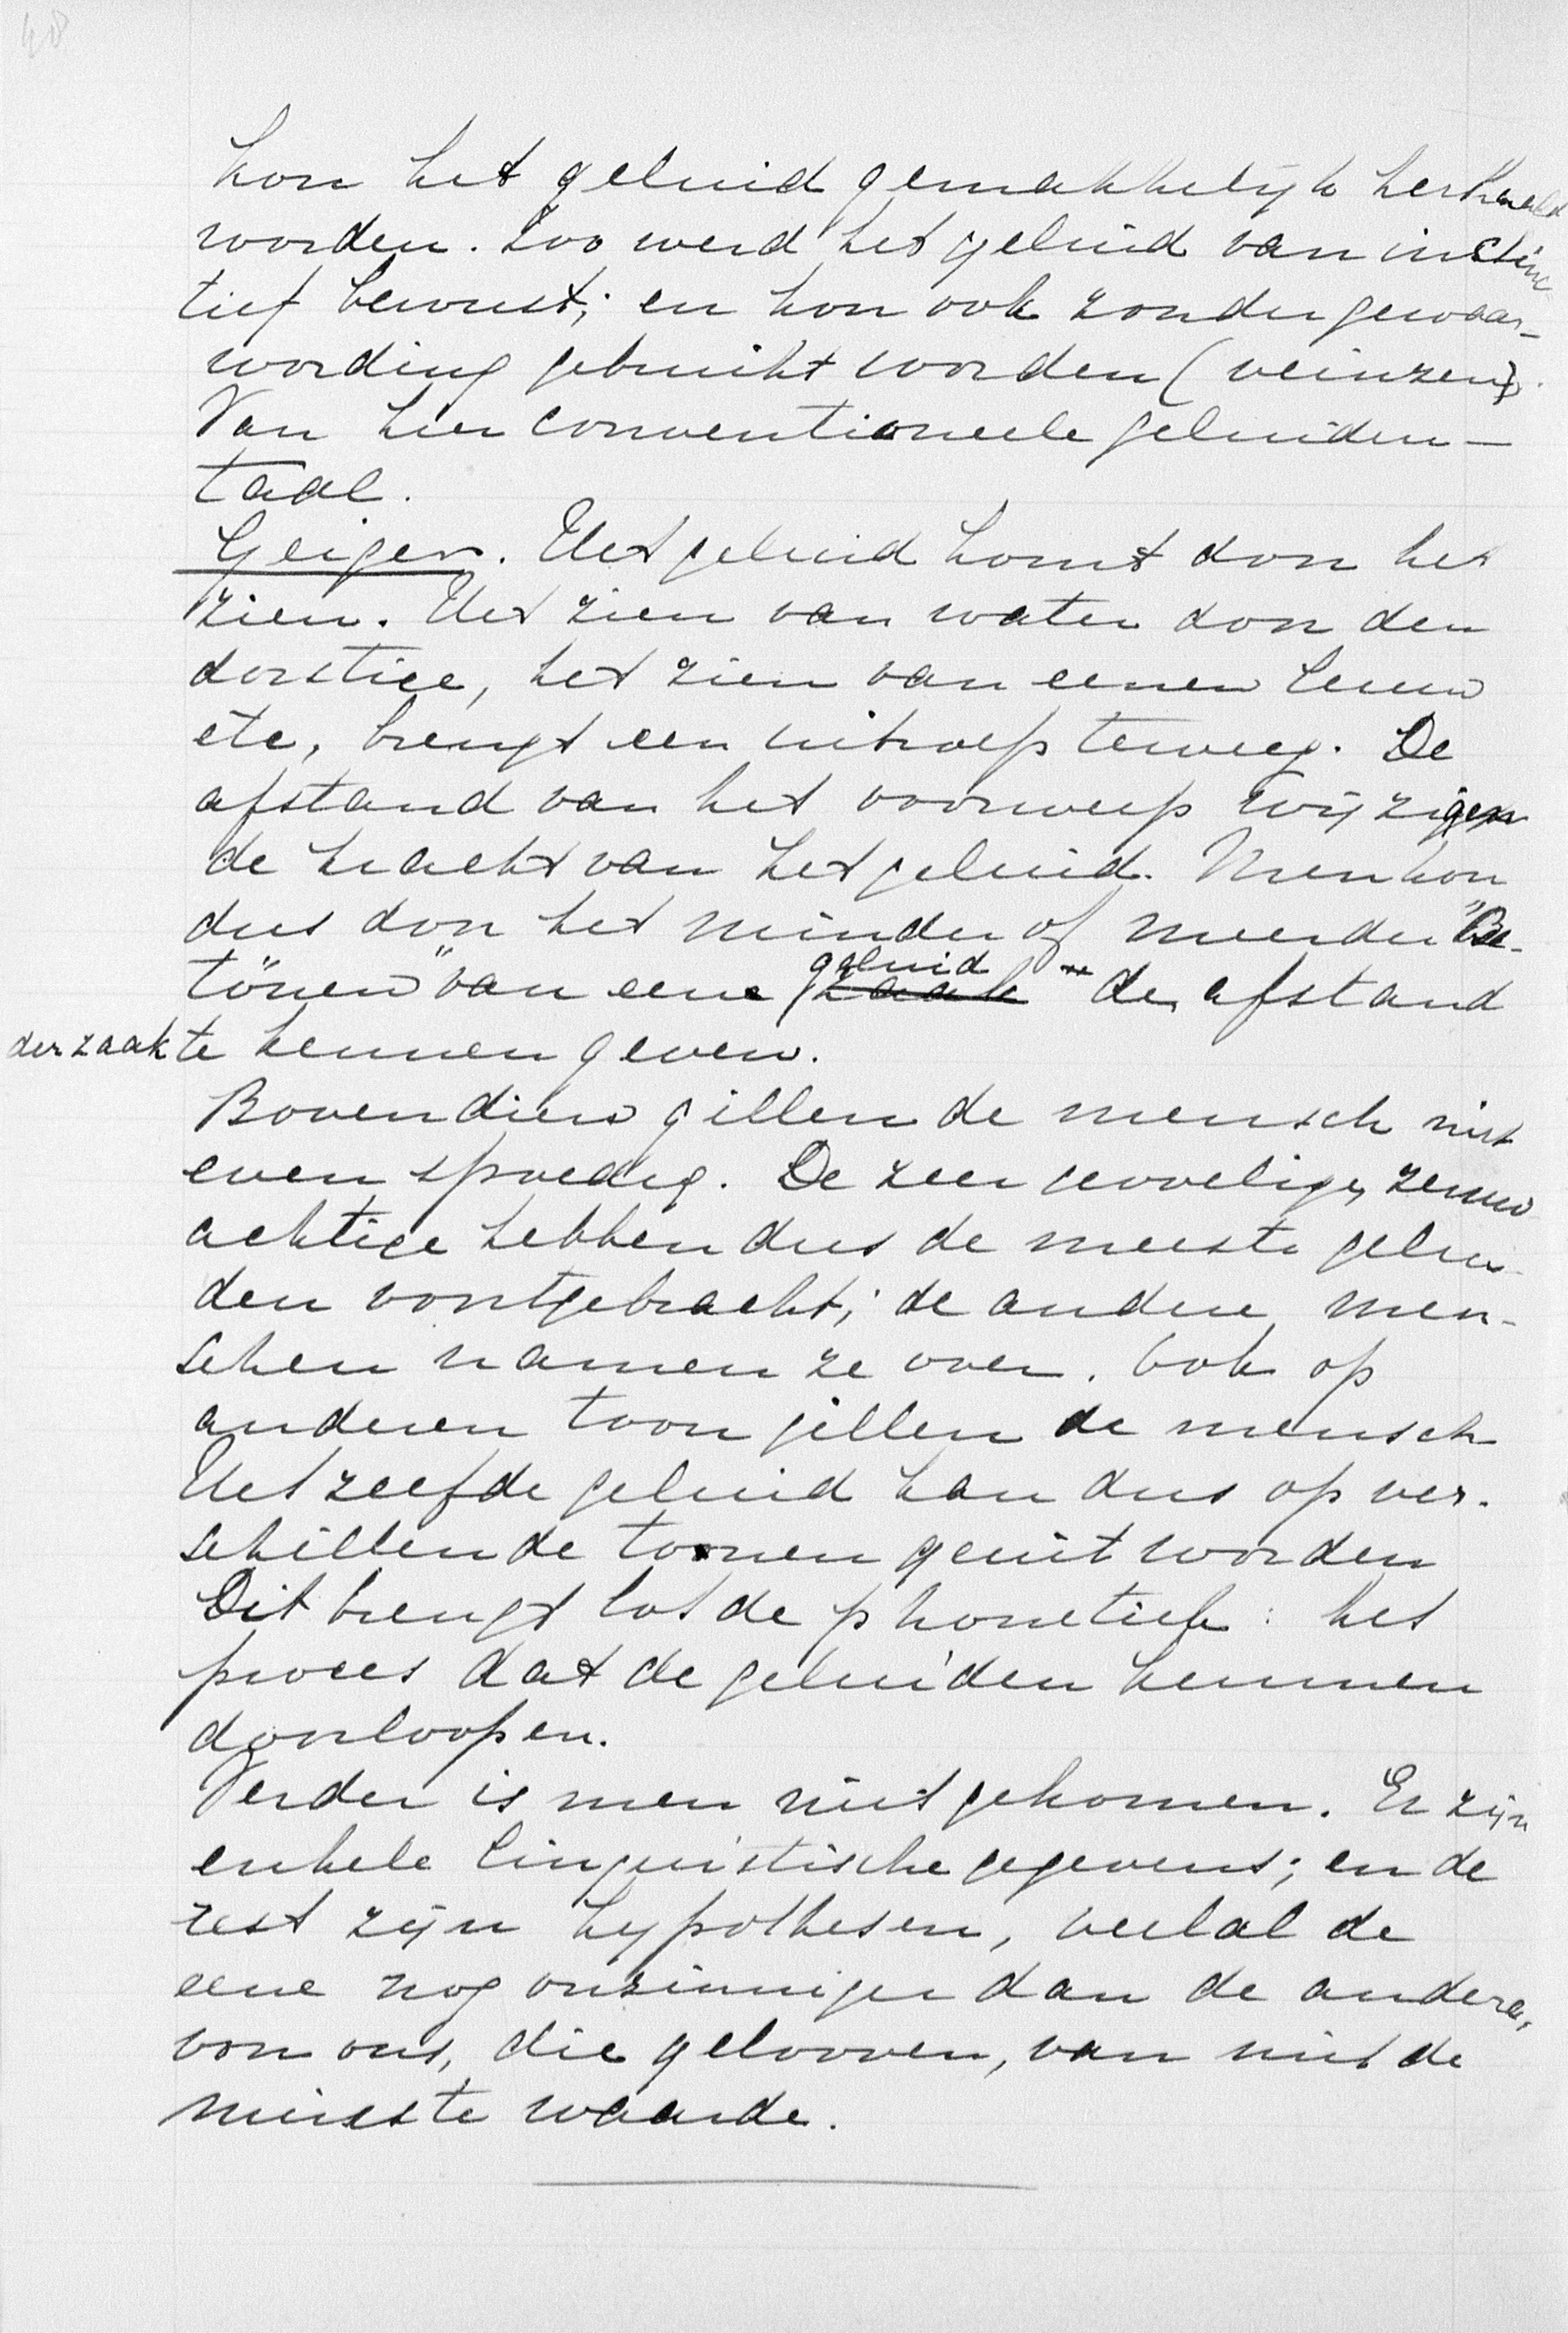 48
kon het geluid gemakkelijk herhaald
worden. Zoo werd het geluid van instinc-
tief bewust; en kon ook zonder gewaar-
wording gebruikt worden (veinzen).
Van hier conventioneele geluiden-
taal.
Geiger. Het geluid komt door het
zien. Het zien van water door den
dorstige, het zien van eenen leeuw
etc, brengt een uitroep teweeg. De
afstand van het voorwerp wijzigen
de kracht van het geluid. Men kon
dus door het minder of meerder "Be-
tönen" van eene zaak geluid den afstand
der zaak te kennen geven.
Bovendien gillen de mensch niet
even spoedig. De zeer gevoelige, zenuw
achtige hebben dus de meeste gelui-
den voortgebracht; de andere men-
schen namen ze over. Ook op
anderen toon gillen de mensch
Het zelfde geluid kan dus op ver-
schillende toonen geuit worden
Dit brengt tot de phonetiek: het
proces dat de geluiden kunnen
doorloopen.
Verder is men niet gekomen. Er zijn
enkele linguistische gegevens; en de
rest zijn hypothesen, veelal de
eene nog onzinniger dan de andere,
voor ons, die gelooven, van niet de
minste waarde.